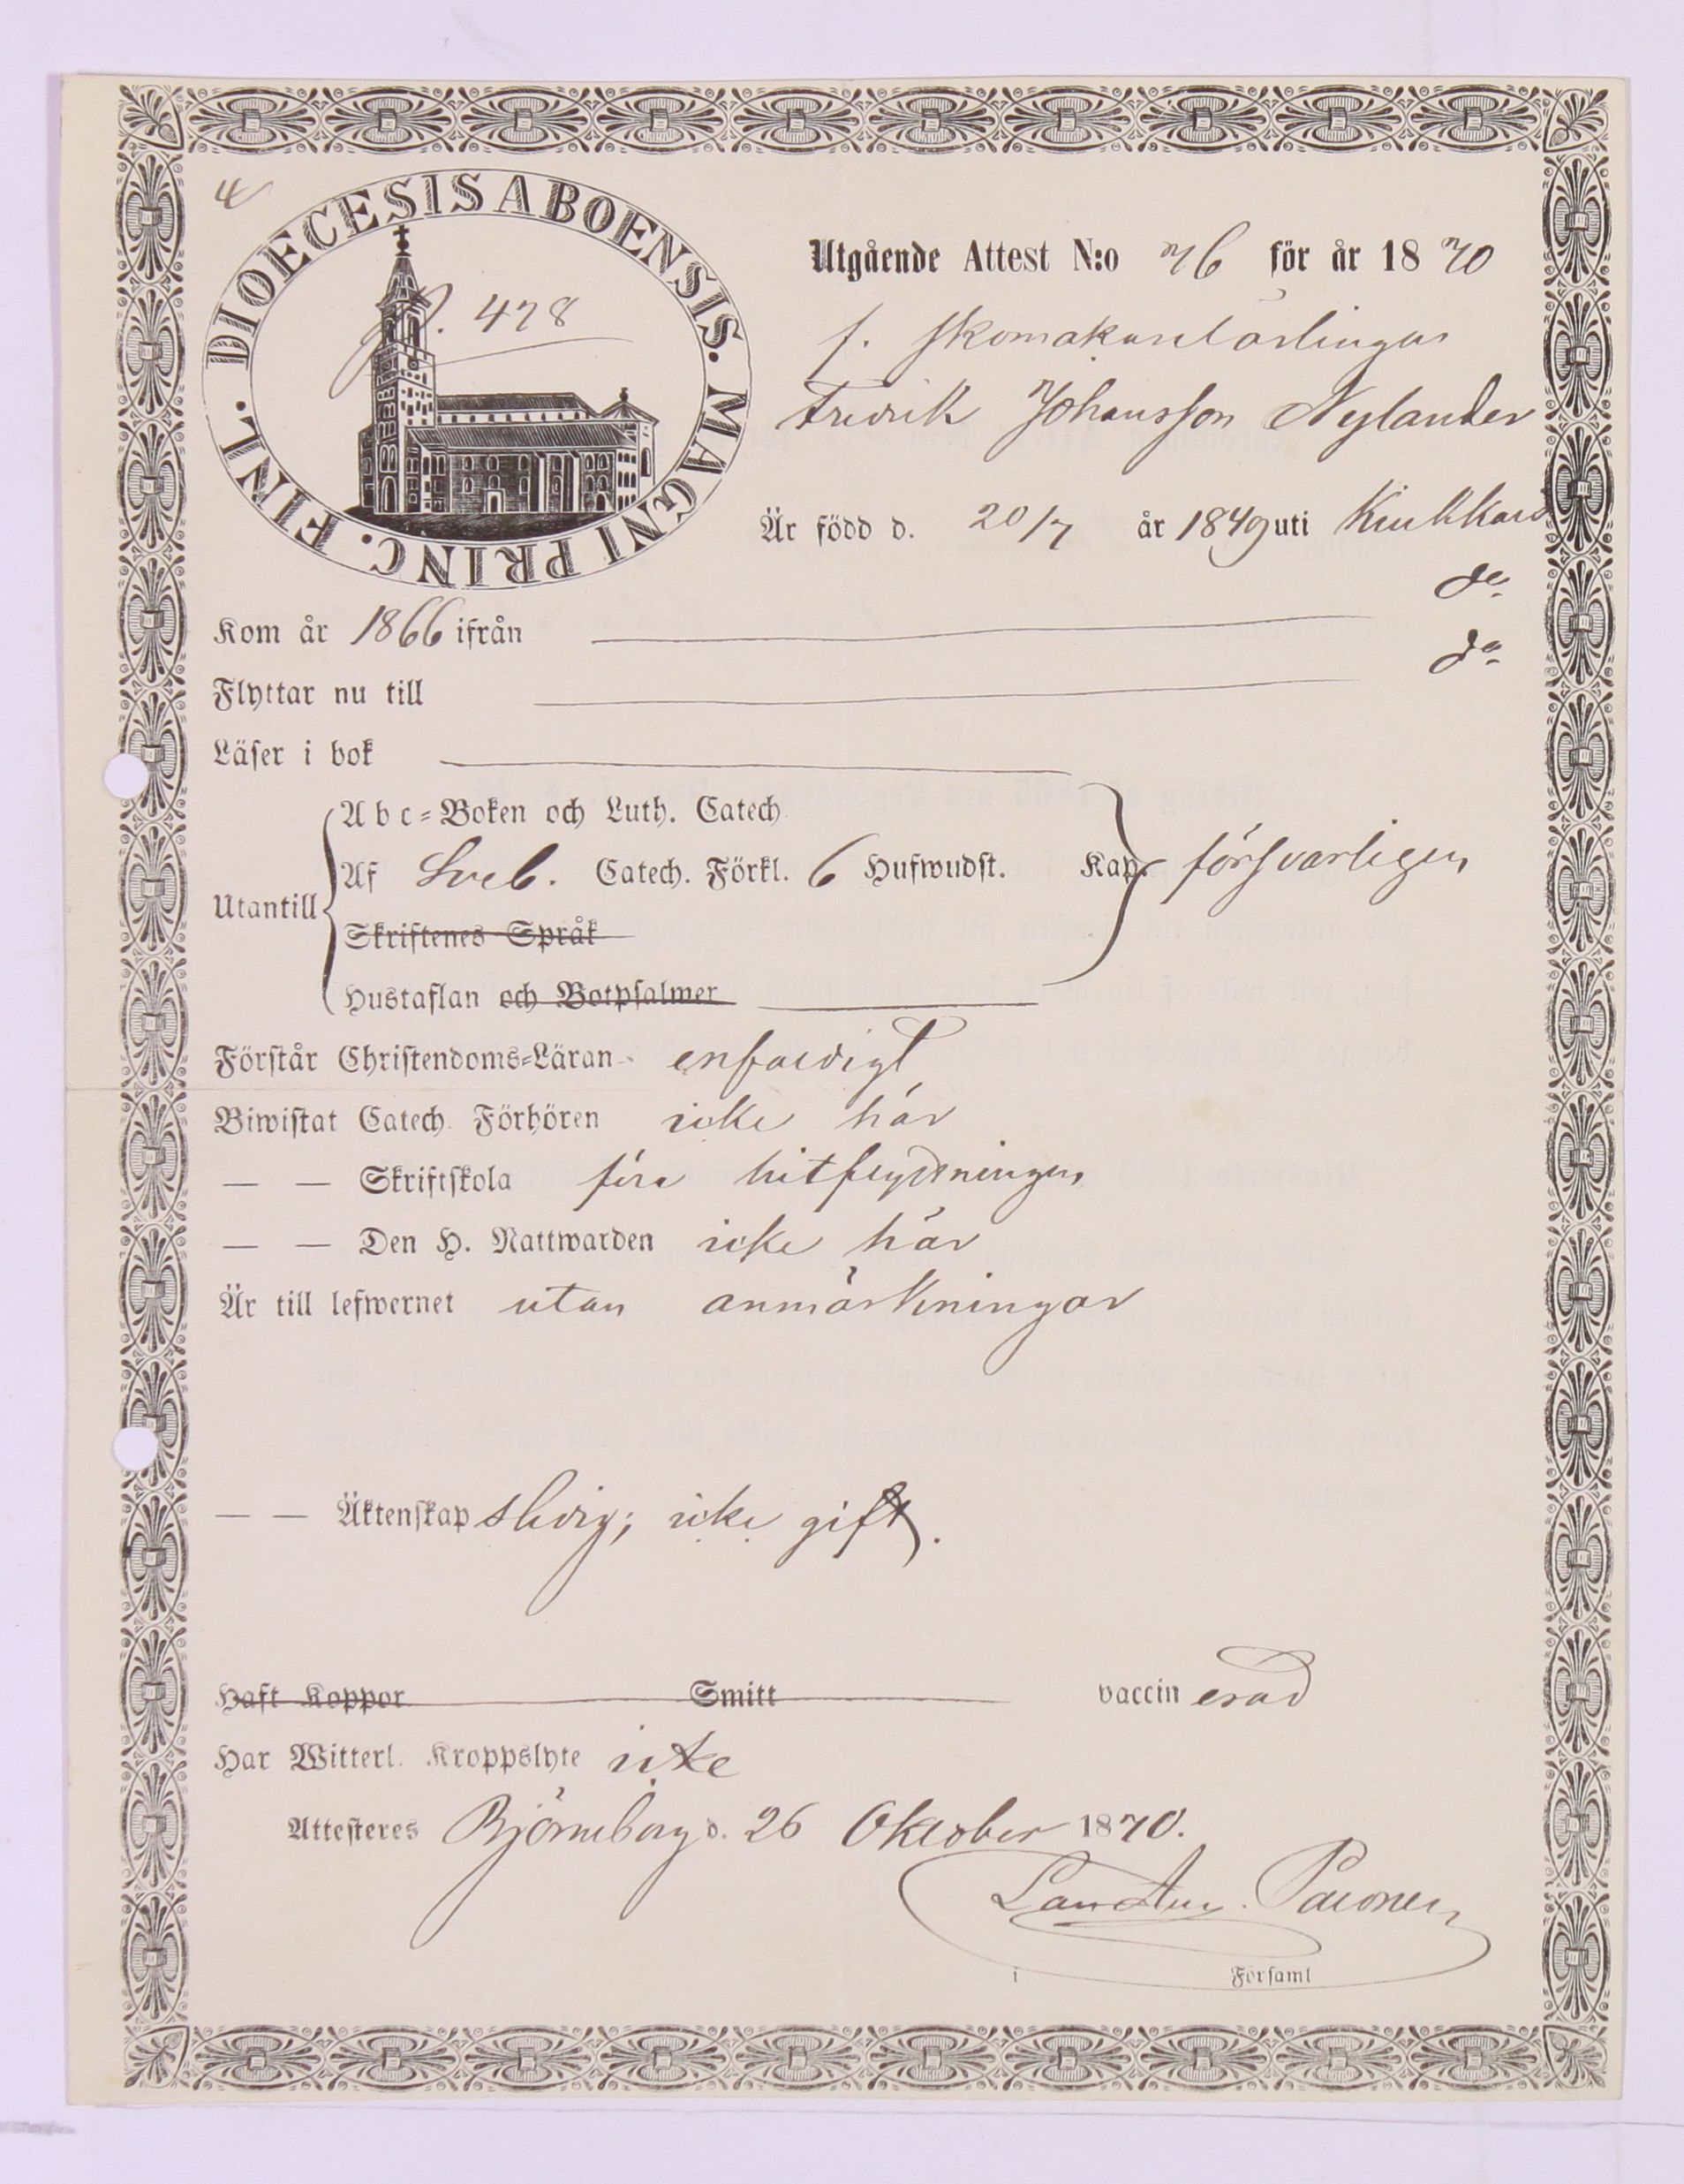 4
DIOECESIS ABOENSIS. MAGNI PRINC. FINL.
p. 478
Utgående Attest N:o 76 för år 1870
f. skomakarelärlingen
Fredrik Johansson Nylander
Är född d. 20/7 år 1849 uti Kiukkais
Kom år 1866 ifrån do
Flyttar nu till do
Läser i bok
Abc-Boken och Luth. Catech.
Utantill Af Sveb. Catech. Förkl. 6 Hufwudst. Kap. försvarligen
Skriftenes Språk
Hustaflan och Botpsalmer
Förstår Christendoms-Läran enfaldigt
Biwistat Catech. Förhören icke här
— — Skriftskola före hitflyttningen
— — Den H. Nattwarden icke här
Är till lefwernet utan anmärkningar
— — Äktenskap sledig; icke gift.
Haft Koppor Smitt vaccinerad
Har Witterl. Kroppslyte icke
Attesteres Björneborg d. 26 Oktober 1870.
i Församl